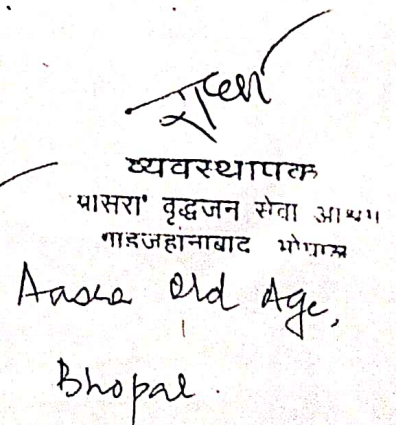 व्यवस्थापक
आसरा वृद्धजन सेवा आश्रम
शाहजहांनाबाद भोपाल
Aasra Old Age,
Bhopal.